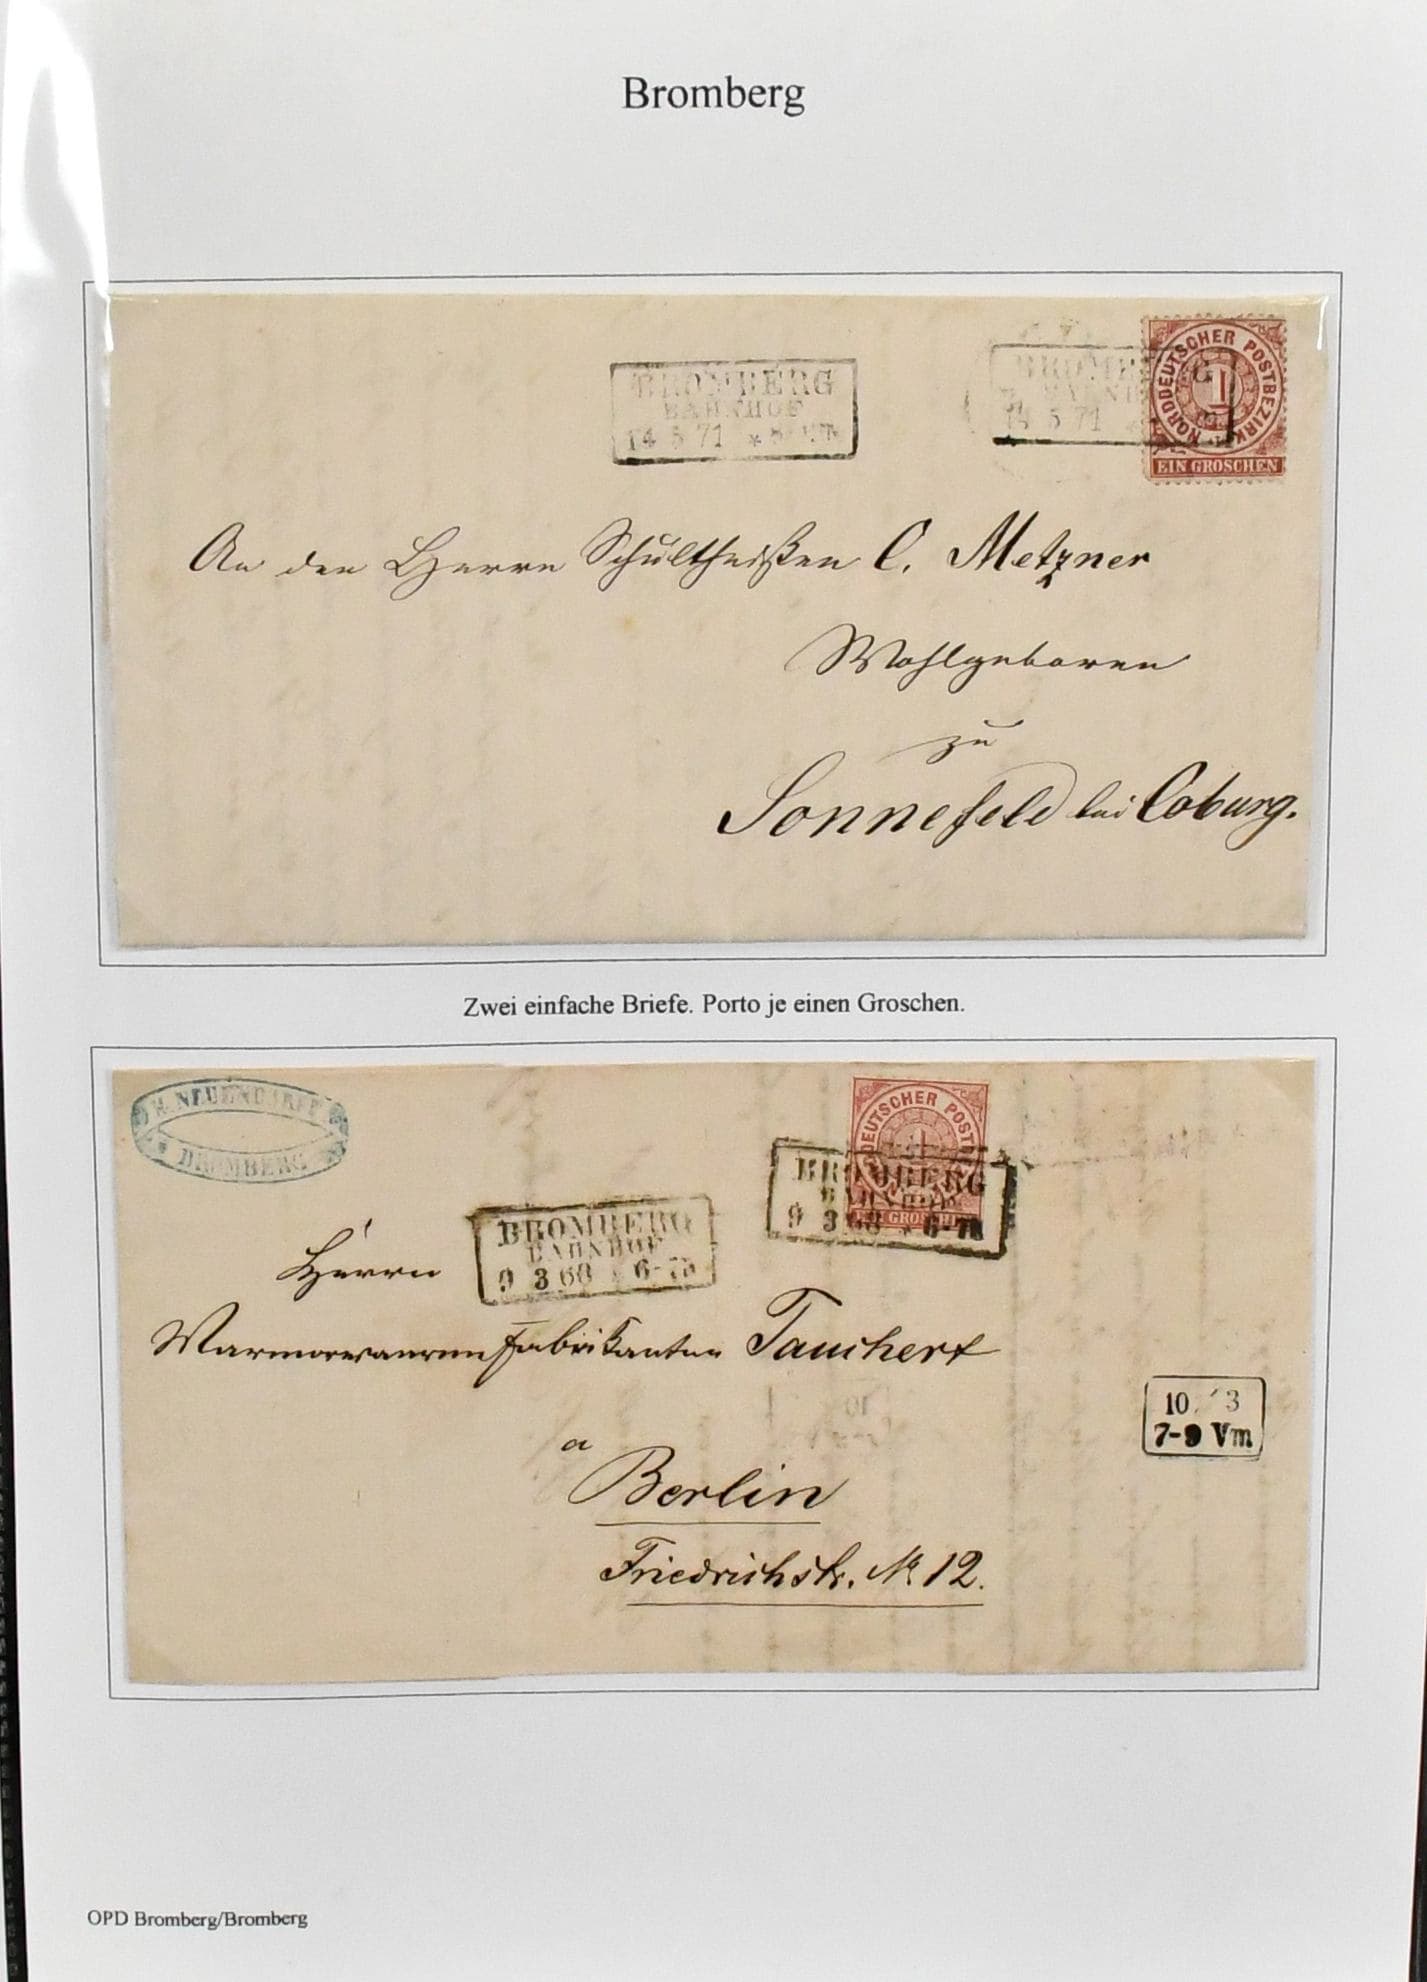 Bromberg
BROMBERG
BAHNHOF
14 5 71 *
BROMBERG
BAHNHOF
14 5 71 *
NORDDEUTSCHER POSTBEZIRK
1
EIN GROSCHEN
An den Herrn Schultheißen C. Metzner
Wohlgeboren
zu
Sonnefeld bei Coburg.
Zwei einfache Briefe. Porto je einen Groschen.
H. NEUENDORFF
BROMBERG
NORDDEUTSCHER POSTBEZIRK
1
EIN GROSCHEN
BROMBERG
BAHNHOF
9 3 68 * 6-7N
BROMBERG
BAHNHOF
9 3 68 * 6-7N
Herrn
Marmorwaarenfabrikanten Tauchert
a
Berlin
Friedrichstr. No 12.
10. 3
7-9 Vm
OPD Bromberg/Bromberg